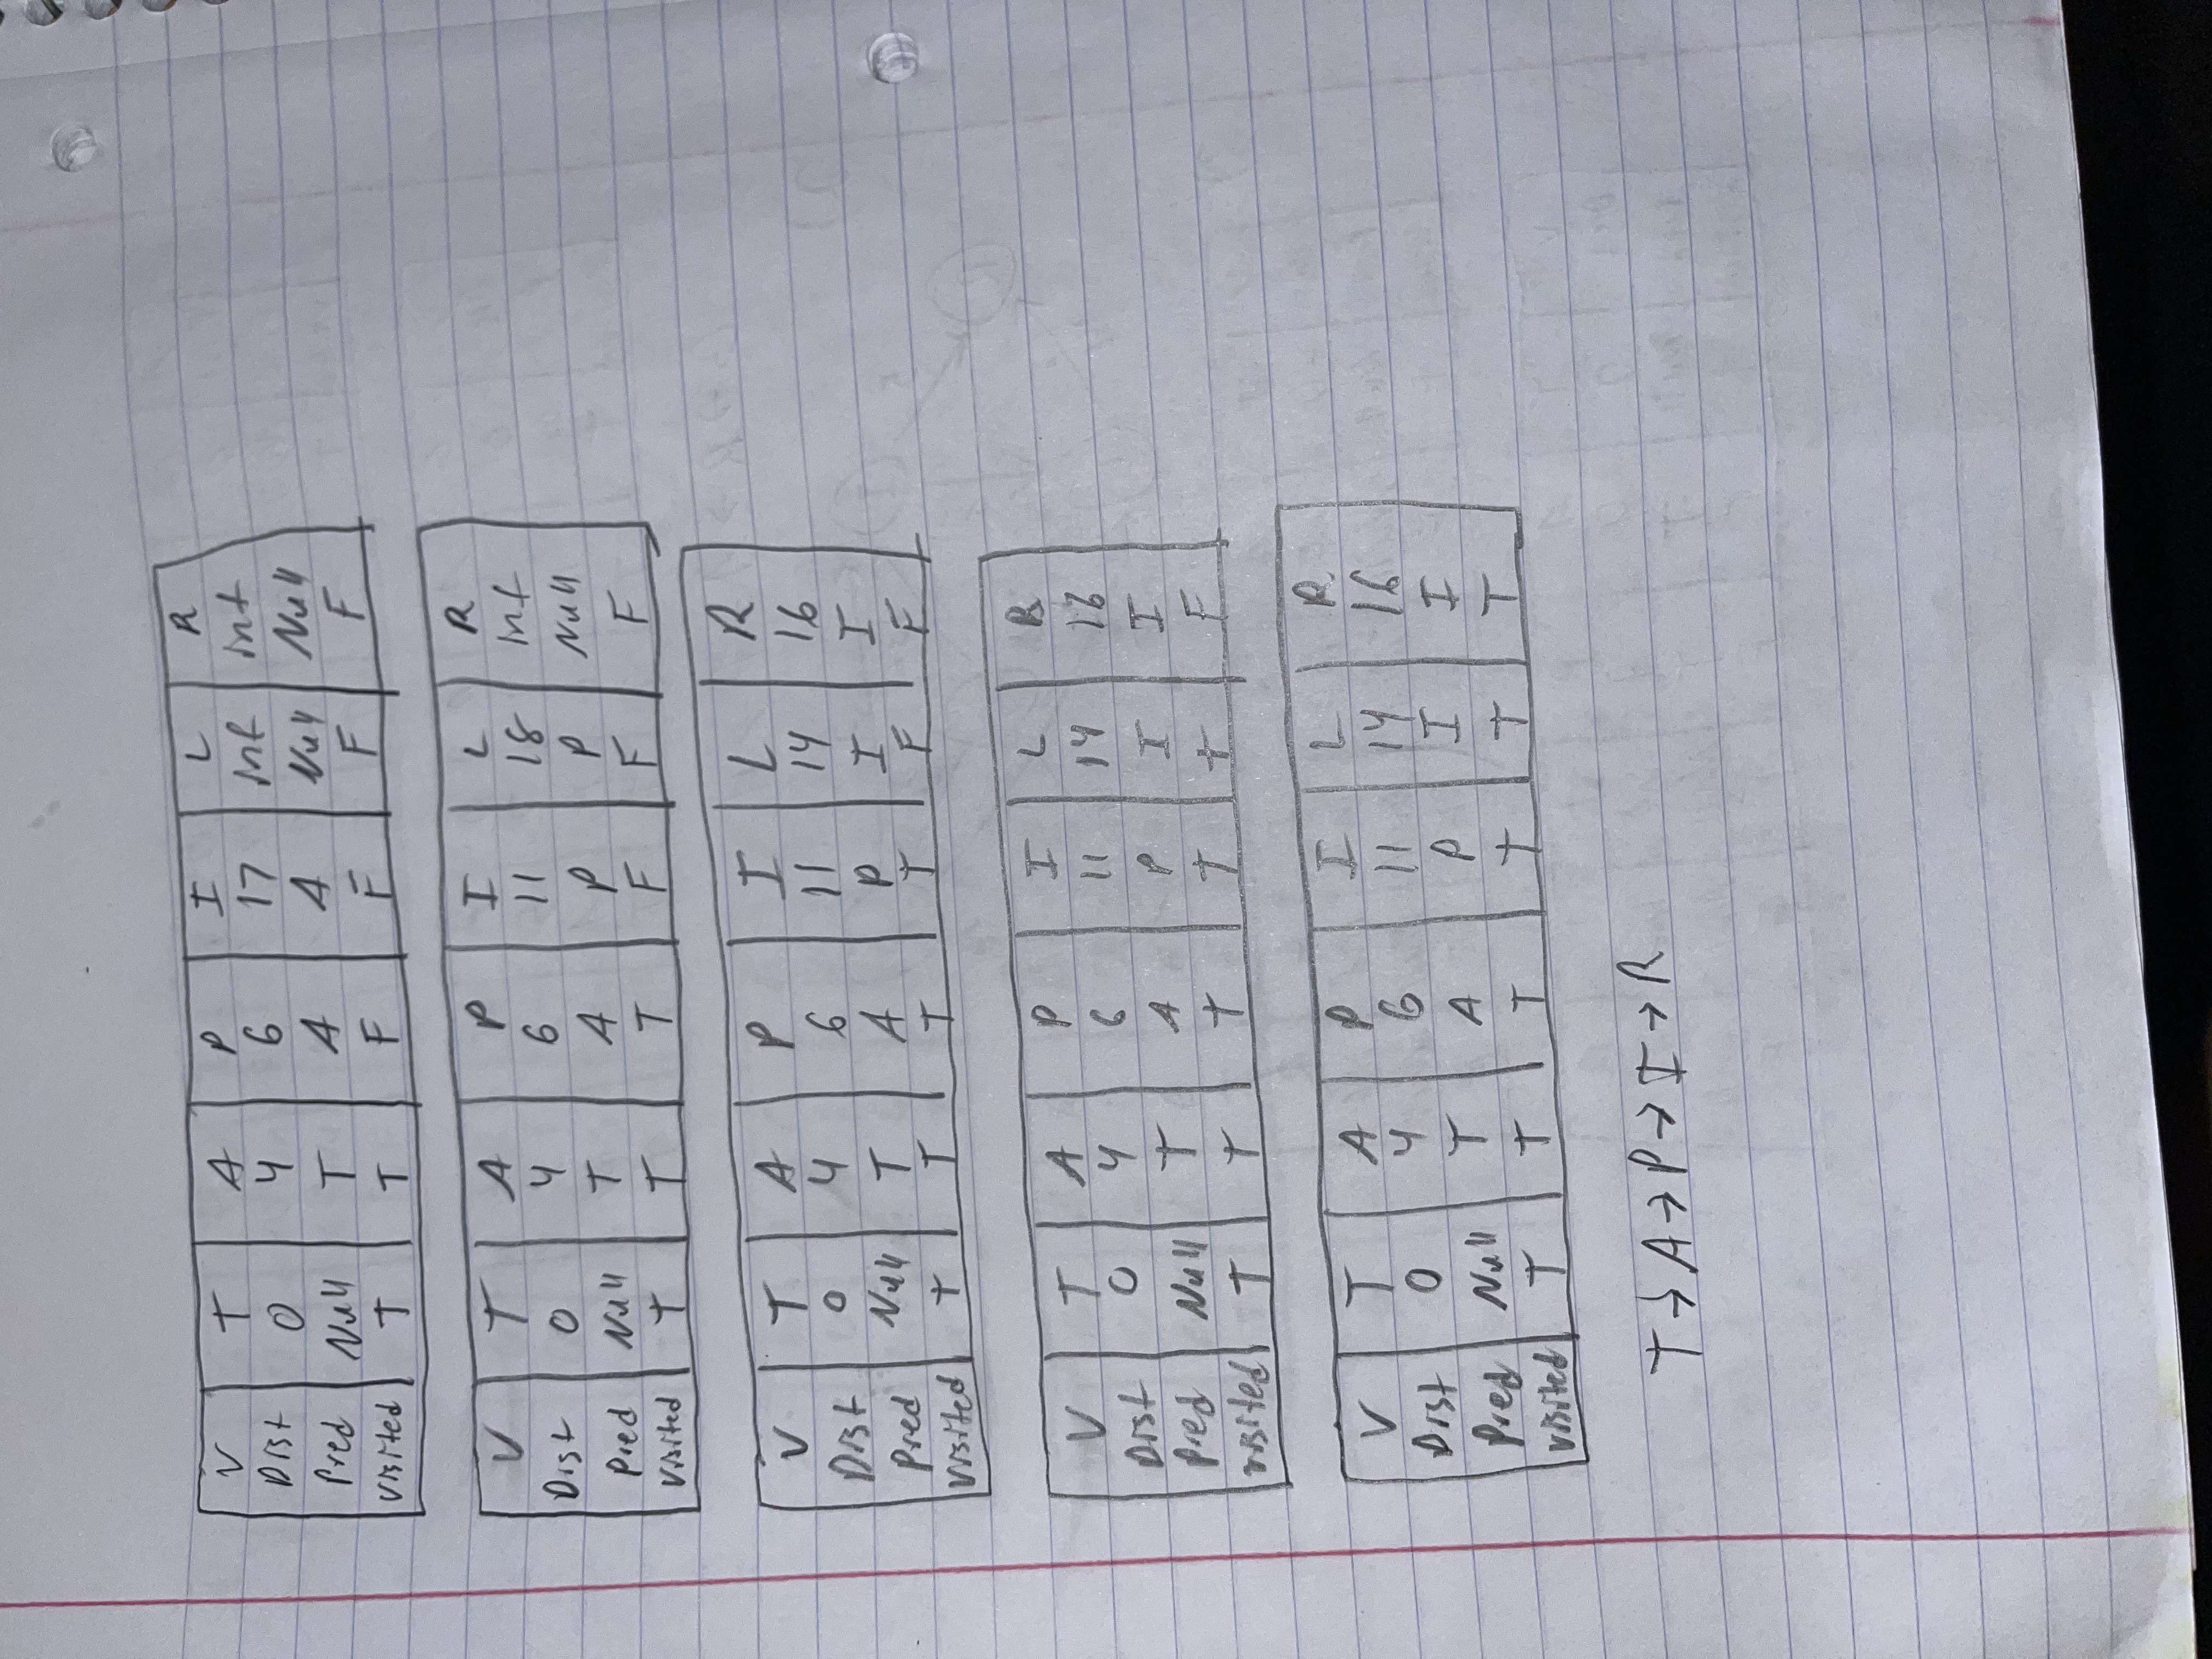 V T A P I L R
Dist 0 4 6 17 inf inf
Pred Null T A A Null Null
Visited T T F F F F
V T A P I L R
Dist 0 4 6 11 18 inf
Pred Null T A P P Null
Visited T T T F F F
V T A P I L R
Dist 0 4 6 11 14 16
Pred Null T A P I I
Visited T T T T F F
V T A P I L R
Dist 0 4 6 11 14 16
Pred Null T A P I I
visited T T T T T F
V T A P I L R
Dist 0 4 6 11 14 16
Pred Null T A P I I
visited T T T T T T
T → A → P → I → R